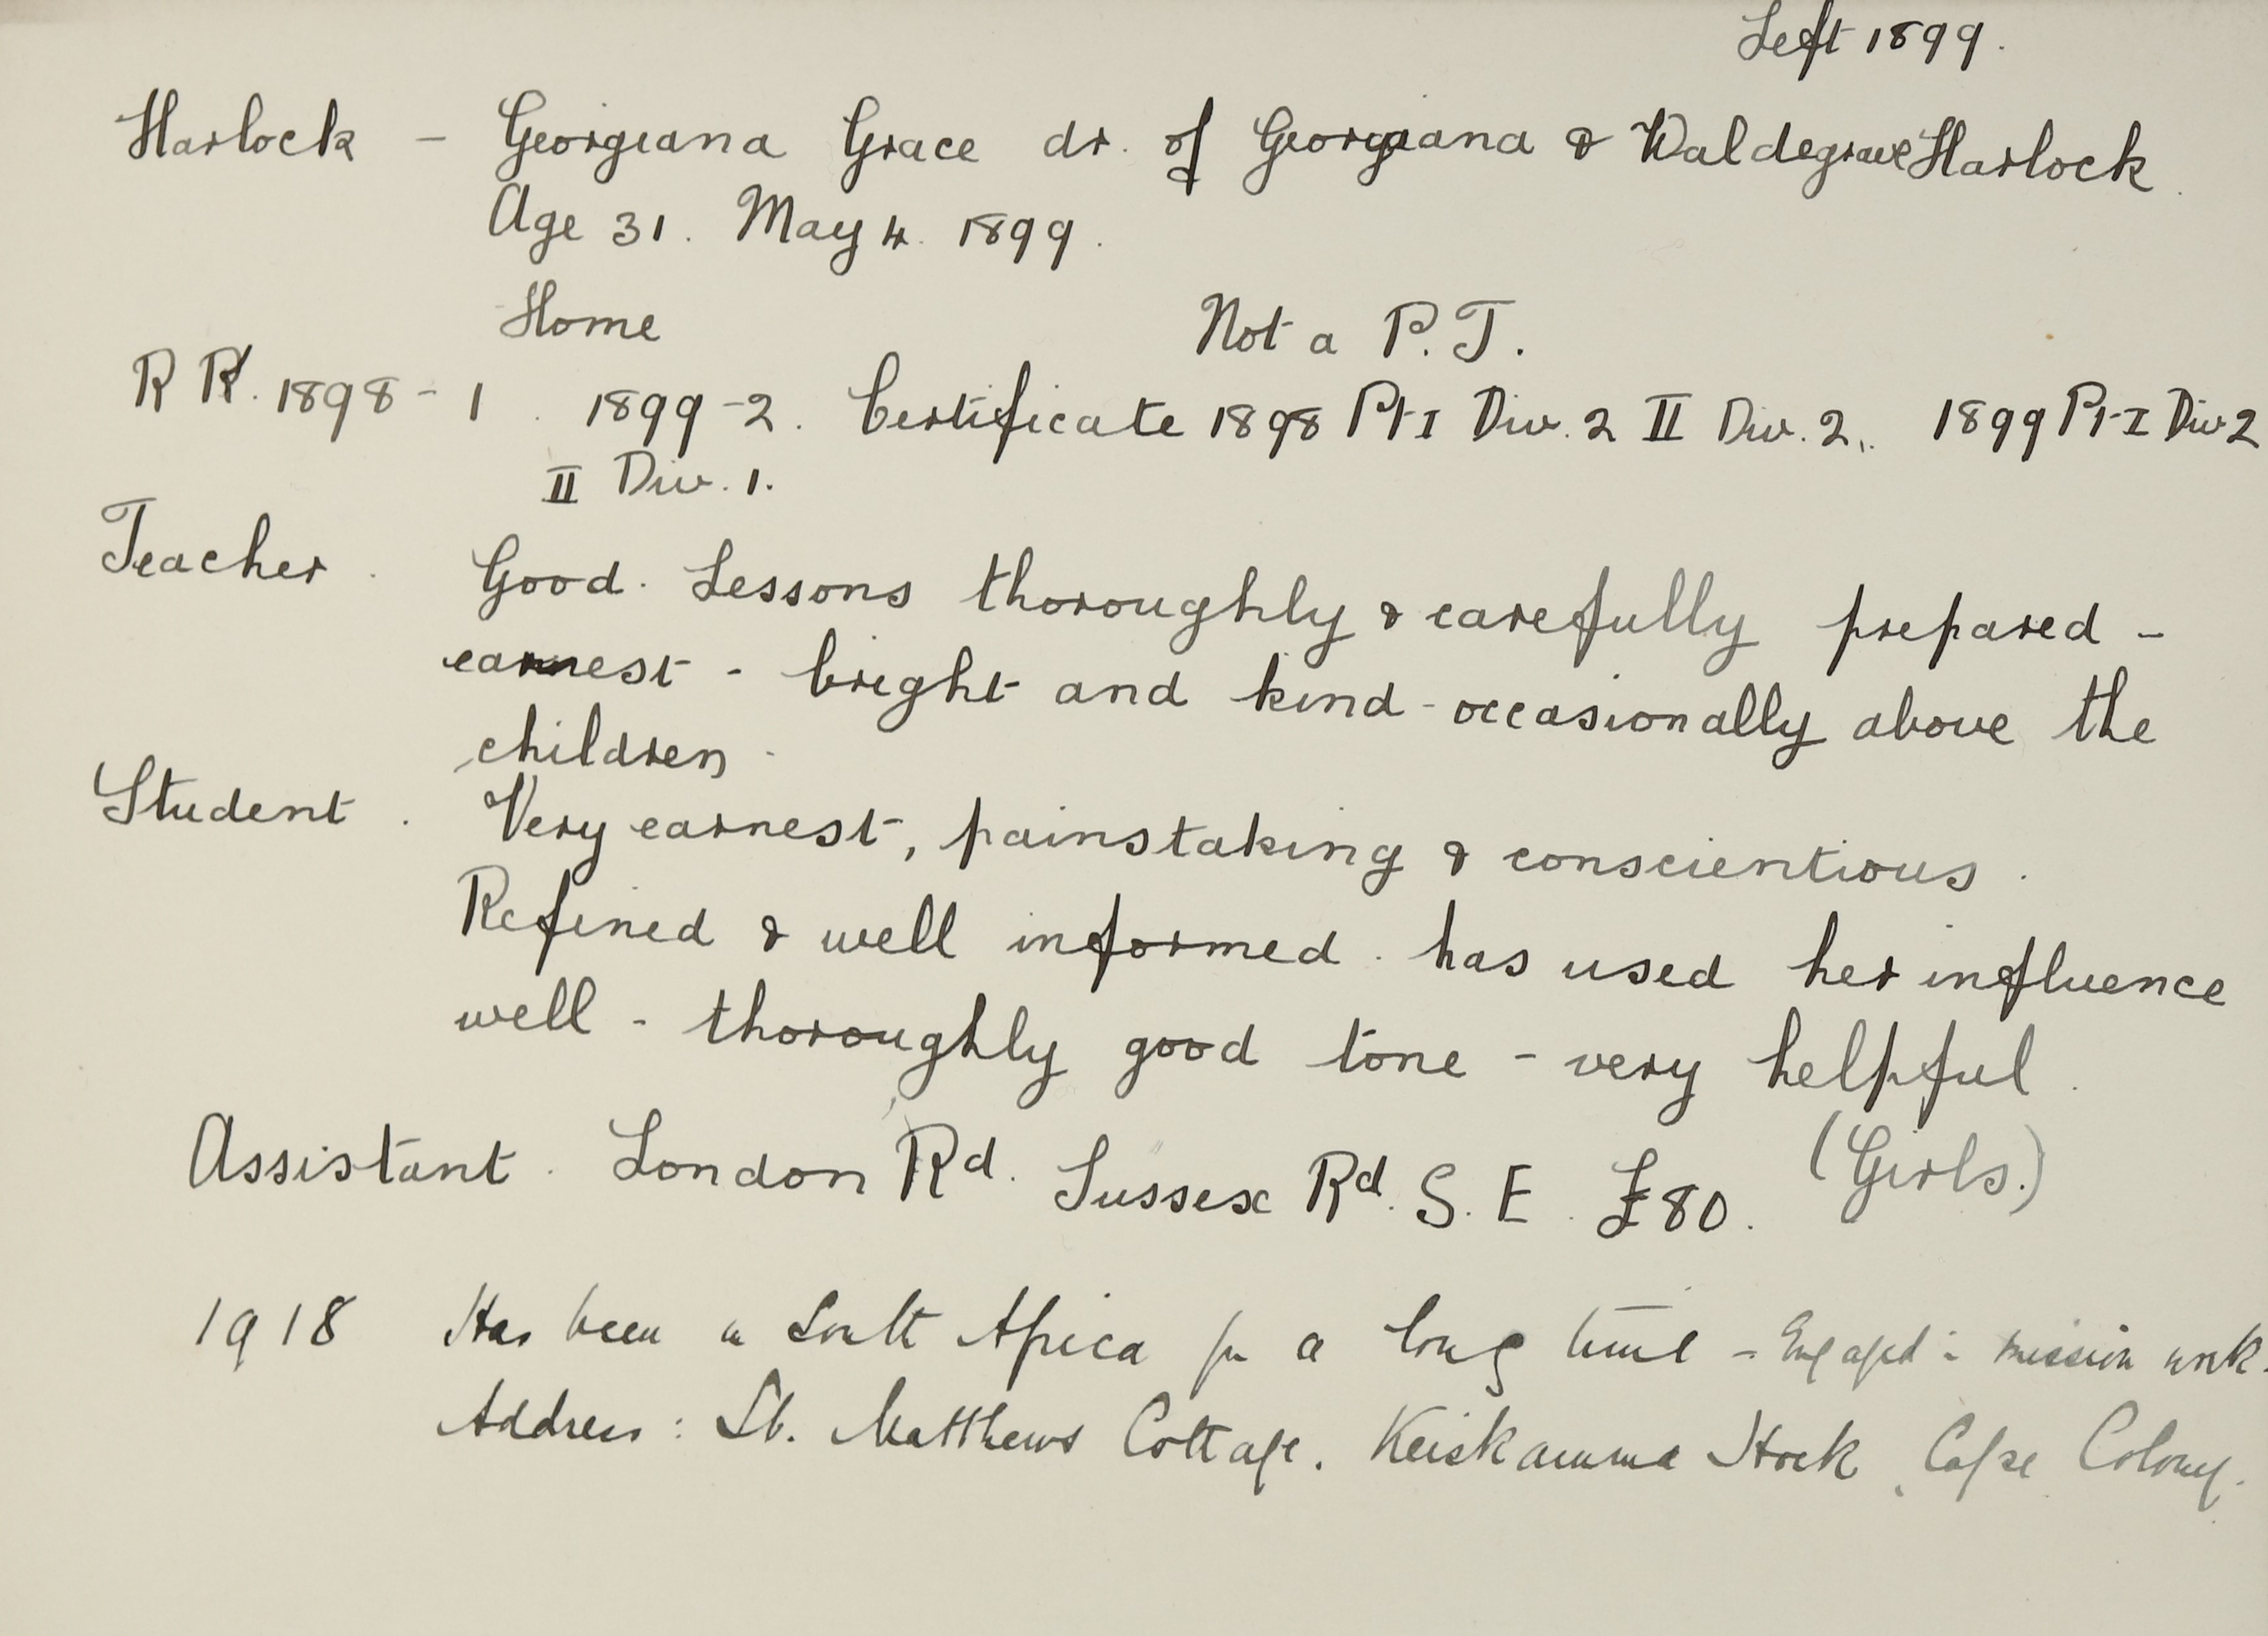 Left 1899.
Harlock - Georgiana Grace dr. of Georgiana & Waldegrave Harlock.
Age 31. May 4. 1899.
Home Not a P.T.
R R. 1898 - 1. 1899 - 2. Certificate 1898 Pt I Div. 2 II Div. 2. 1899 Pt I Div 2
II Div. 1.
Teacher. Good. Lessons thoroughly & carefully prepared -
earnest - bright and kind - occasionally above the
children.
Student. Very earnest, painstaking & conscientious.
Refined & well informed. has used her influence
well - thoroughly good tone - very helpful.
Assistant. London Rd. Sussex Rd. S. E. £80. (Girls.)
1918 Has been in South Africa for a long time - Engaged in mission work.
Address: St. Matthews Cottage. Keiskamma Hoek, Cape Colony.